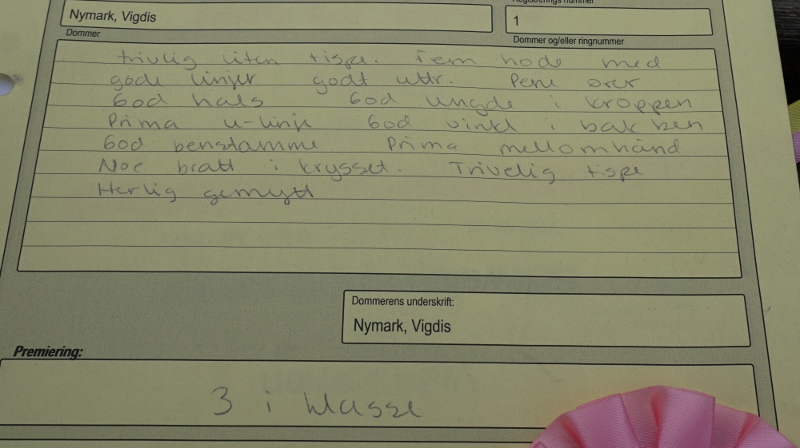 Registrerings nummer
Nymark, Vigdis
1
Dommer
Dommer og/eller ringnummer
trivlig liten tispe. Fem hode med
gode linjer godt uttr. Pene ører
God hals God lengde i kroppen
Prima u-linje God vinkl i bak ben
God benstamme Prima mellomhånd
Noe bratt i krysset. Trivelig tispe
Herlig gemytt
Dommerens underskrift:
Nymark, Vigdis
Premiering:
3 i klasse